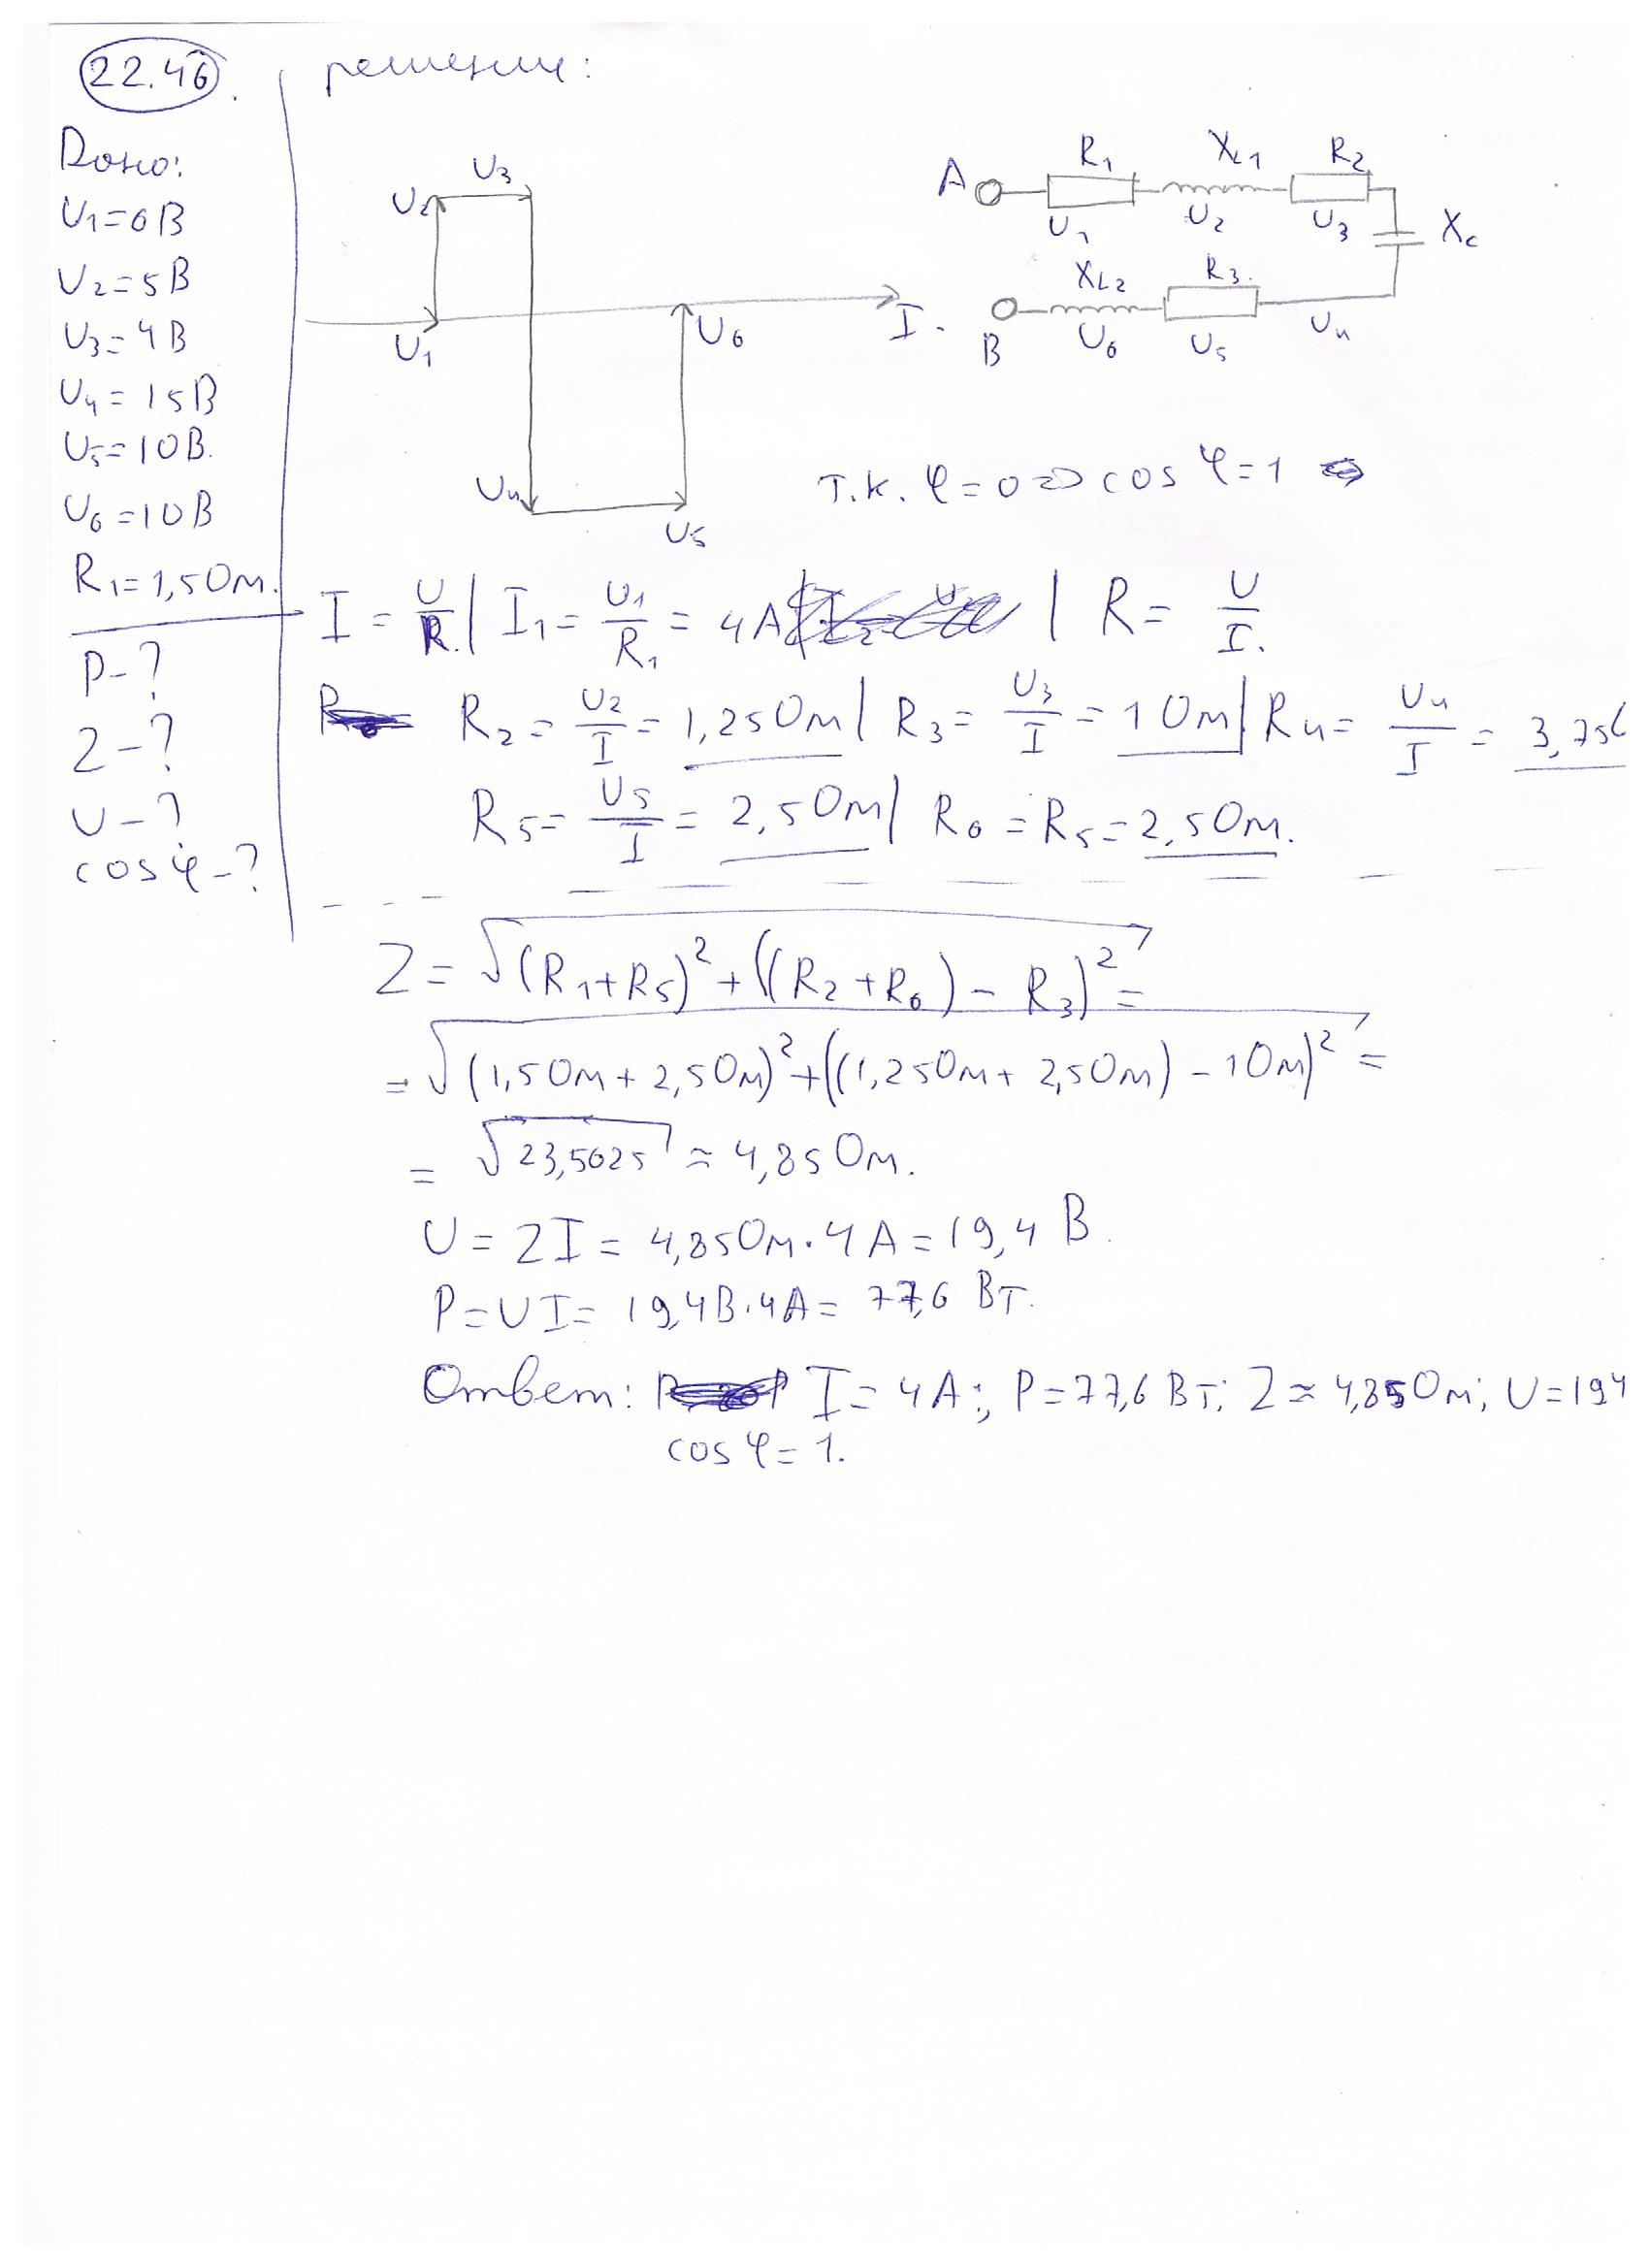 22.46.
решение:
Дано:
U1=6В
U2=5В
U3=4В
U4=15В
U5=10В.
U6=10В
R1=1,5Ом.
P-?
Z-?
U-?
cos φ-?
U2 U3
U1 U6 I.
U4 U5
A R1 XL1 R2
U1 U2 U3 Xc
XL2 R3.
B U6 U5 U4
т.к. φ=0 => cos φ=1
I = U/R. | I1 = U1/R1 = 4A | R = U/I.
R2 = U2/I = 1,25Ом | R3 = U3/I = 1Ом | R4 = U4/I = 3,75
R5 = U5/I = 2,5Ом | R6 = R5 = 2,5Ом.
Z = √(R1+R5)² + ((R2+R6) - R3)² =
= √(1,5Ом + 2,5Ом)² + ((1,25Ом + 2,5Ом) - 1Ом)² =
= √23,5625 ≈ 4,85Ом.
U = ZI = 4,85Ом · 4A = 19,4 В.
P = UI = 19,4В·4A = 77,6 Вт.
Ответ: I = 4A; P = 77,6 Вт; Z ≈ 4,85Ом; U = 19,4
cos φ = 1.